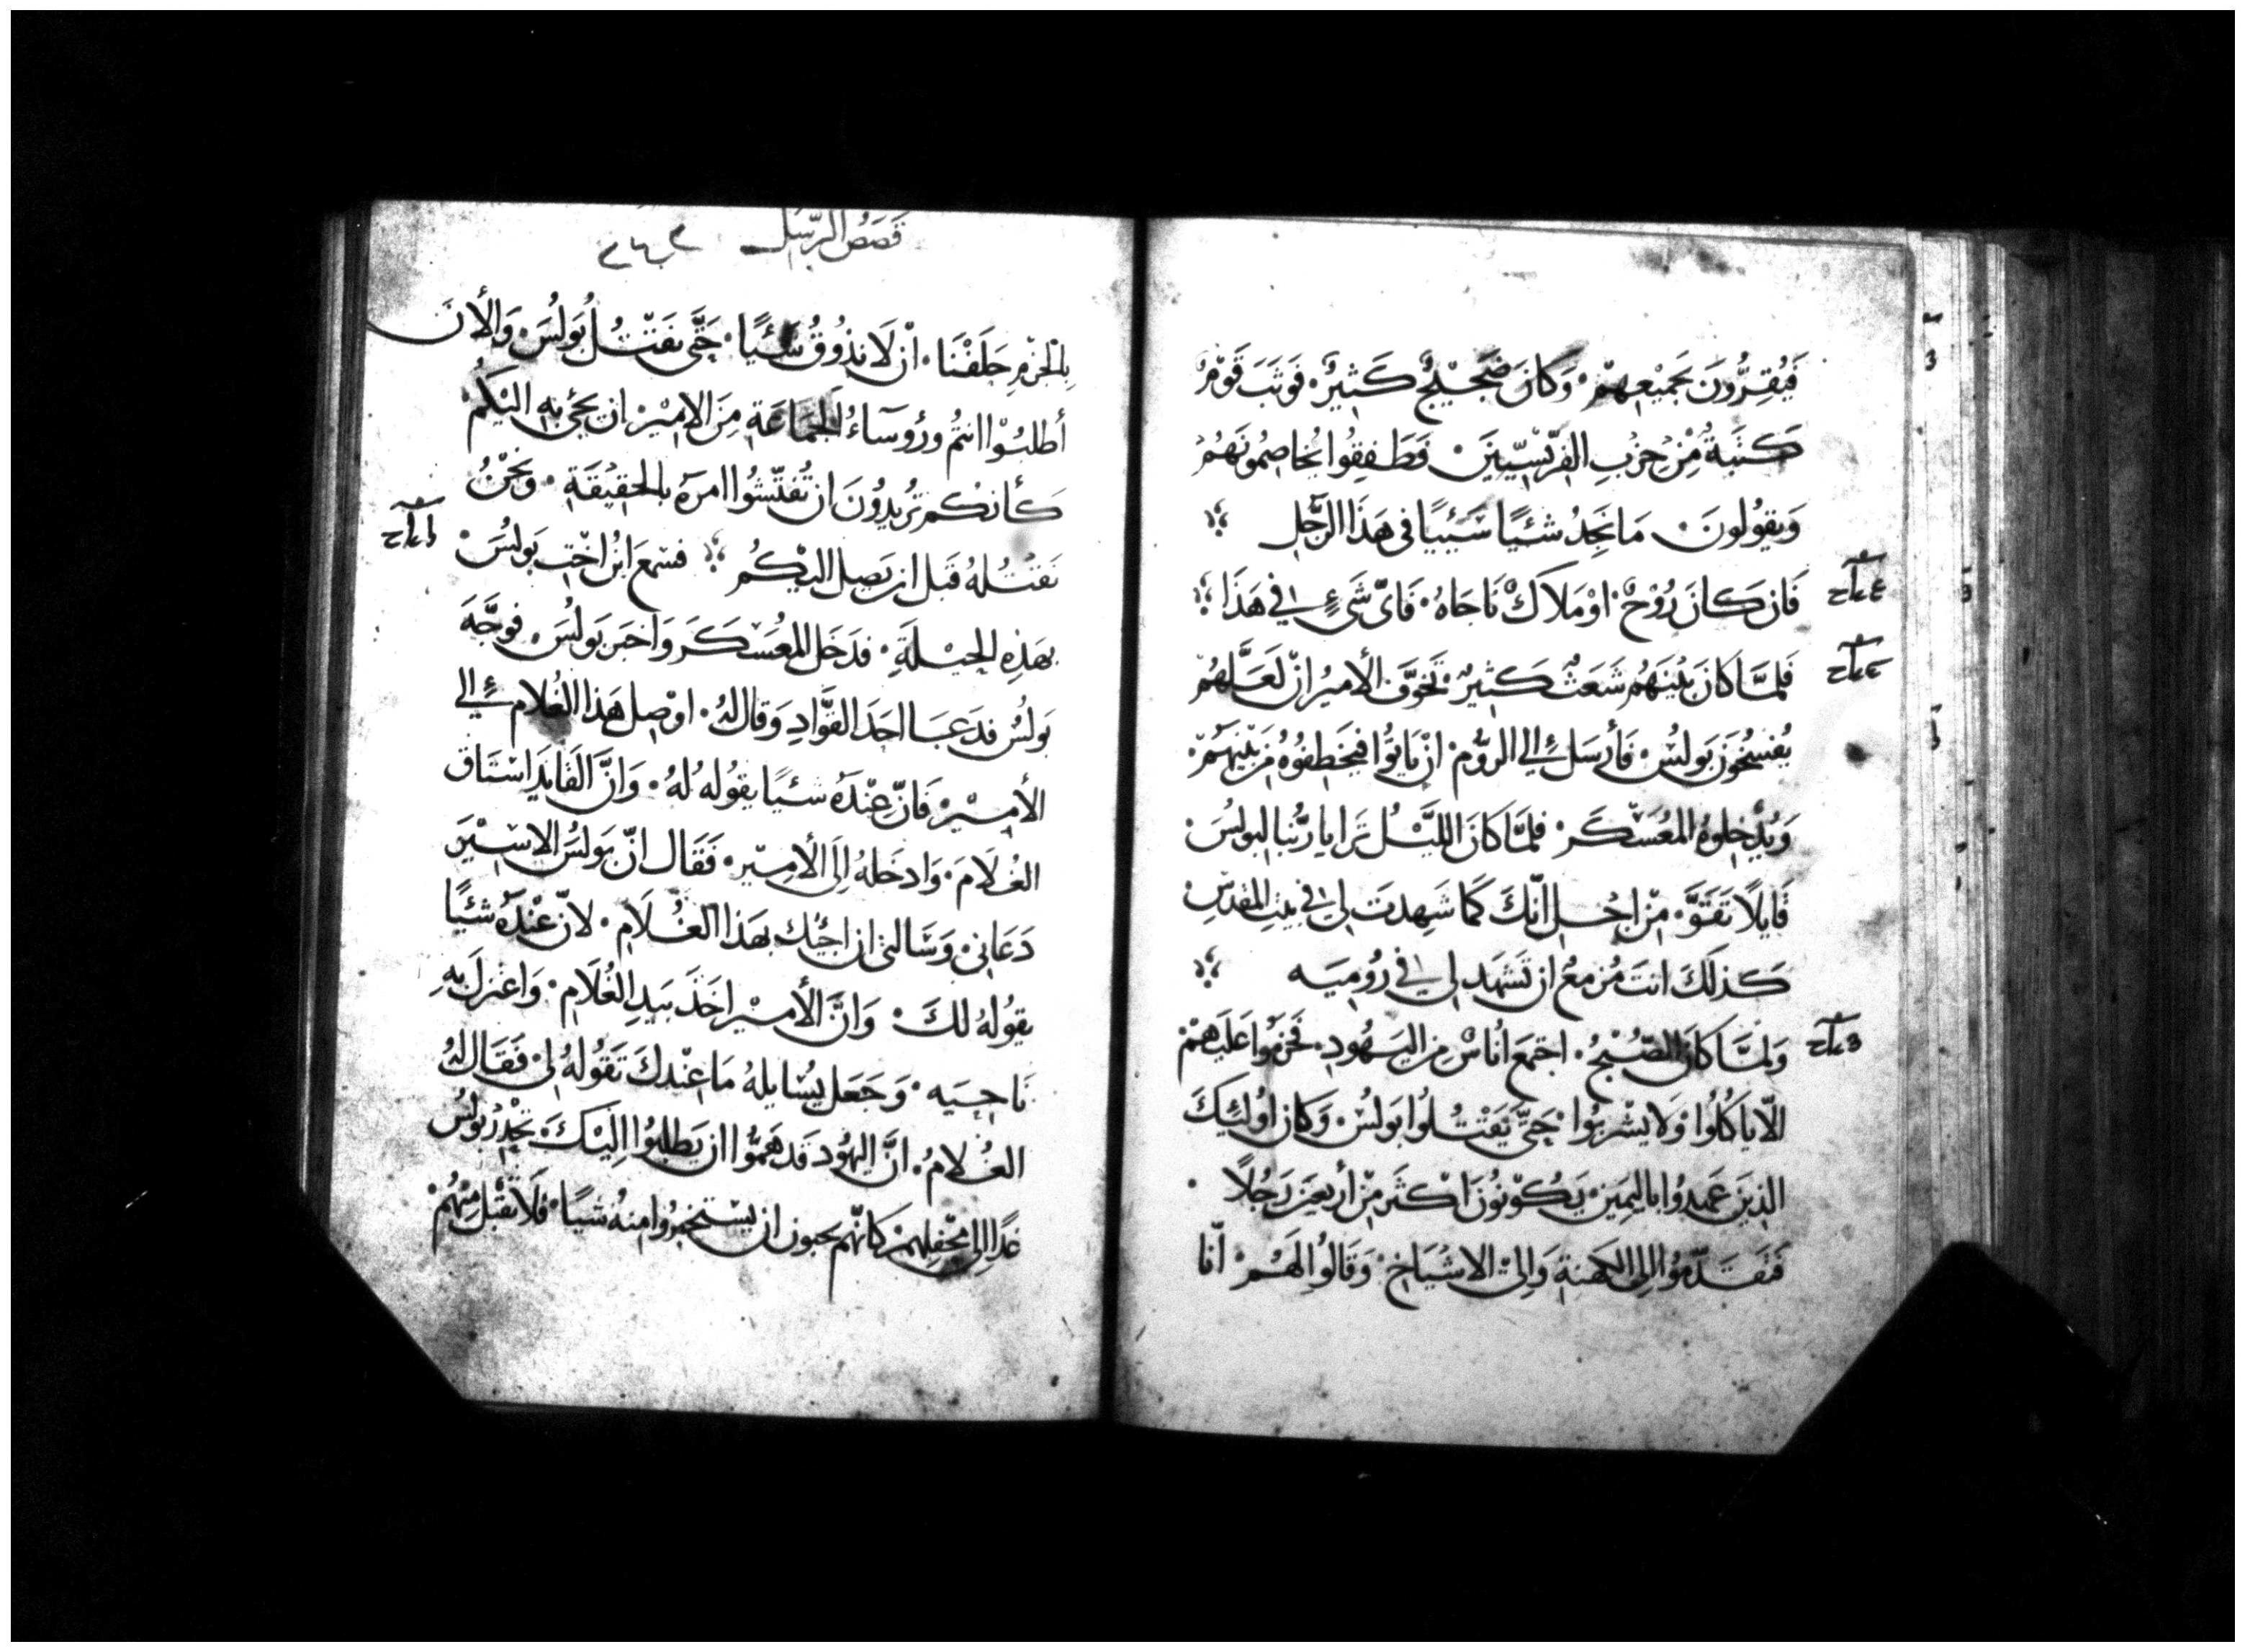 فَيُقِرُّونَ بجَمِيْعِهِمْ· وَكانَ ضَجَيْجٌ كَثِيرٌ· فَوثَبَ قَوْمٌ
كَتَبَةُ مِنْ حِزْبِ الفِرِّيْسِّيينَ· وَطَفِقِوُا يُخاصِمُونَهُمْ
وَيقوُلونَ· مَا نَجِدُ شئيًا سَيِيًا فى هَذَا الرَّجِل
فَان كانَ رُوْحٌ· اوْ مَلَاكٌ نَاجَاهُ· فَاىّ شَىءٍ فِي هَذَا
فَلمَّا كَانَ بَيْنَهُم شَعَثٌ كَثِيرٌ· تَخوَّفَ الأمِيرُ انْ لَعَلَّهُمْ
يُفسِخُونَ بَولسُ· فَأرسَل إلي الروُّم· انْ يَاتوُا فيَخطِفوُهُ مِنْ بَيْنِهِمْ·
وَيُدْخِلوهُ المعُسَكَر· فلمَّا كانَ الليَّلُ تَرَايا رَبُّنا لبولسَ·
قَايلًا تَقوَّ· مِنْ اجْل انّكَ كَمَا شَهِدتَ لِي فى بيَتِ المقدسِ
كَذلكَ انتَ مُزمِعُ ان تَشهَد لِي فى رُومِيَه
وَلمَّا كانَ الصُّبْحُ· اجتمَع أُناسٌ مِن اليَهُودِ· فَحَرمُوا عَلَيهمْ
الّا يَاكُلوُا وَلا يشْربوُا· حَتَّى يَقتُلوُا بَولسُ· وَكان اوُلئِكَ
الذينَ عَمِدوُا باليمِينِ· يَكوْنوُنَ اكْثَر مِنْ أربعين رَجُلًا·
فَتقَدّموُا الِى الكهَنةِ وَالِىْ الاشيَاخِ· وَقَالُوا لَهَمُ· انّا
قَصَصُ الرّسُل
بالحُرْمِ حَلَفْنَا· انْ لَا نذُوُقُ شَئيًا· حَتَّى نقَتُلُ بُولسَ· وَالأنَ
أطلبُوْا انتمُ ورُوسَاءُ الجمَاعَةِ مِنَ الاميْر ان يجىُ بِهِ اليَكمُ
كأنكُم ترُيدوُنَ ان تُفَتّشوُا امرَهُ بالحقيْقَةِ· وَنحنُ
نَقتُلهُ قَبل ان يَصِل اليْكُم فسَمعَ ابْنُ اخْتِ بَولسُ·
بهَذِهِ الحيْلَةِ· فدَخل المعُسَكَرَ وَاخبَر بَولسُ· فوجَّهَ
بَولسُ فدَعَا احَدَ القوَّادِ وَقال لَهُ· اوْصِل هَذا الغُلام إلي
الأميْر· فَانّ عِنْدَهُ شئيًا يقوُله لهُ· وَانَّ القَايدَ استَاق
الغُلَامَ· وَادخَلهُ الَى الأمِيّر· فَقَال انّ بَولسُ الاسِيْرَ
دَعَانِى· وَسَالنى ان اجِيئُك بهَذا الغُلَام· لانّ عِنْدَهُ شئيًا
يقوُلهُ لكَ· وَانَّ الأميْر اخَذَ بيَدِ الغُلَامِ· وَاعتزلَ بهِ
نَاحِيَه· وَجَعَل يُسَايلهُ مَا عِنْدكَ تقَوُلهُ لِى· فَقَال لهُ
الغُلامُ· انَّ اليهُود قَد هَموُّا ان يَطلبوُا اليْكَ· تحْدِرُ بَولسُ
غدًا الى محَفِلهِمْ كَانّهم يحبون ان يستخبِروُا منهُ شيئًا· فَلا تقْبل مِنهُمْ·